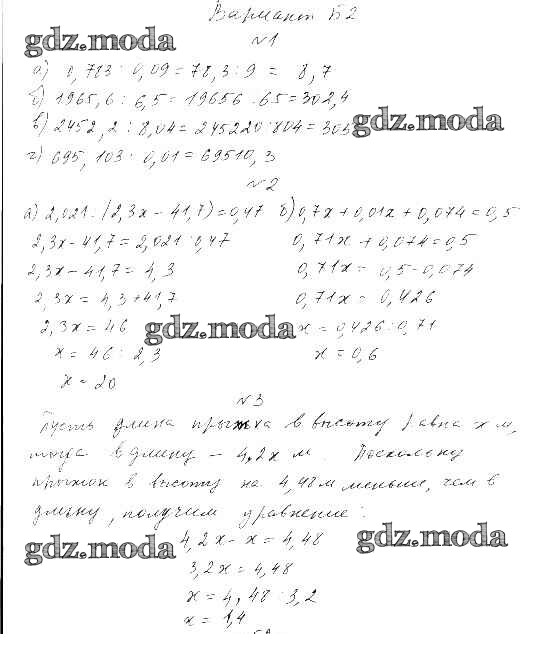 Вариант Б2
gdz.moda
№1
а) 0,783 : 0,09 = 78,3 : 9 = 8,7
б) 1965,6 : 6,5 = 19656 : 65 = 302,4
в) 2452,2 : 8,04 = 245220 : 804 = 305
gdz.moda
г) 695,103 : 0,01 = 69510,3
№2
а) 2,021 : (2,3x − 41,7) = 0,47
2,3x − 41,7 = 2,021 : 0,47
2,3x − 41,7 = 4,3
2,3x = 4,3 + 41,7
2,3x = 46
x = 46 : 2,3
x = 20
б) 0,7x + 0,01x + 0,074 = 0,5
0,71x + 0,074 = 0,5
0,71x = 0,5 − 0,074
0,71x = 0,426
x = 0,426 : 0,71
x = 0,6
gdz.moda
№3
Пусть длина прыжка в высоту равна x м,
тогда в длину – 4,2x м. Поскольку
прыжок в высоту на 4,48 м меньше, чем в
длину, получим уравнение:
gdz.moda
gdz.moda
4,2x − x = 4,48
3,2x = 4,48
x = 4,48 : 3,2
x = 1,4